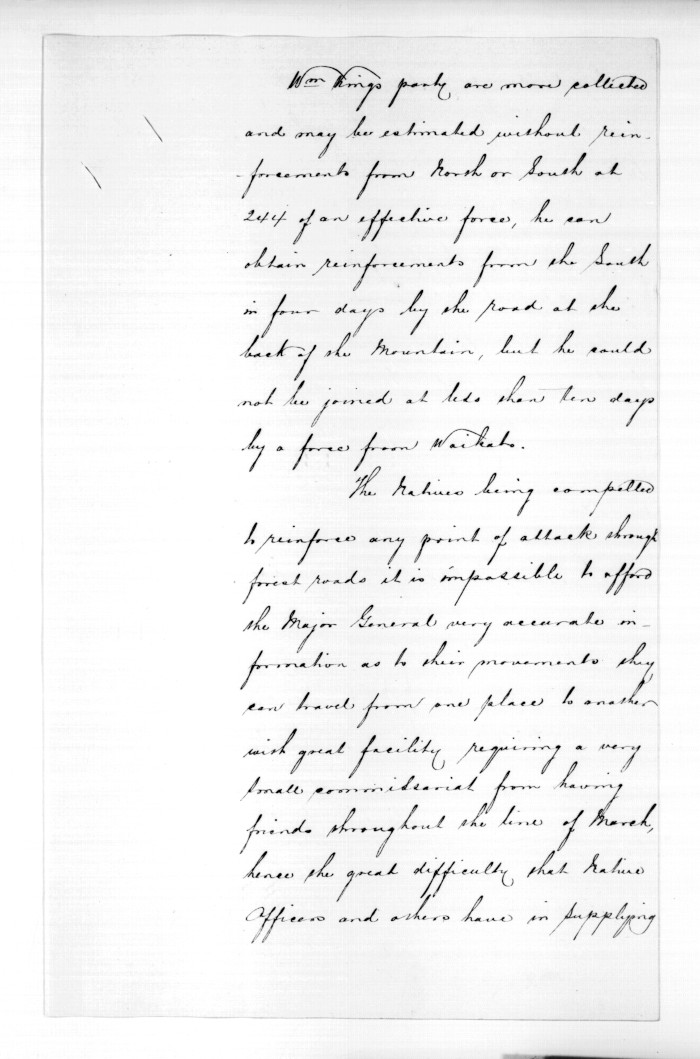 Wm Kings party are more collected
and may be estimated without rein-
-forcements from North or South at
244 of an effective force, he can
obtain reinforcements from the South
in four days by the road at the
back of the Mountain, but he could
not be joined at less than ten days
by a force from Waikato.
The Natives being compelled
to reinforce any point of attack through
forest roads it is impossible to afford
the Major General very accurate in-
formation as to their movements they
can travel from one place to another
with great facility requiring a very
small commissariat from having
friends throughout the line of March,
hence the great difficulty that Native
Officers and others have in supplying